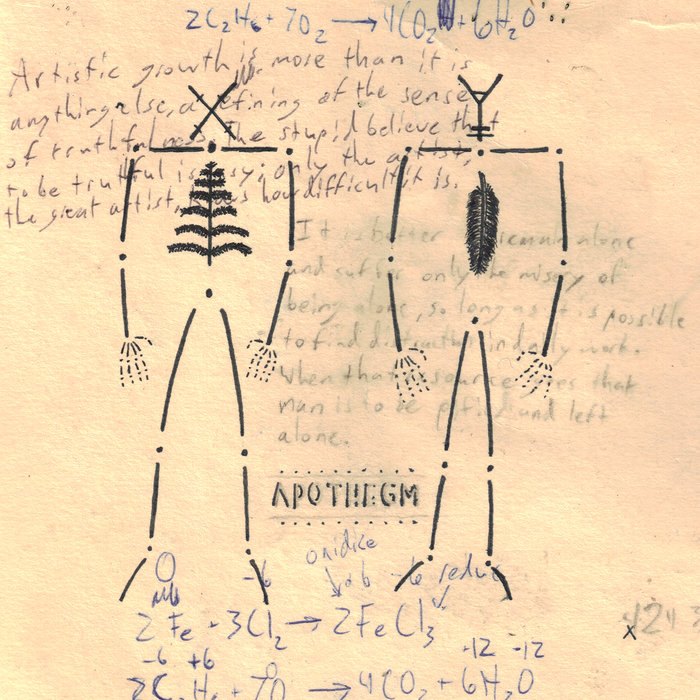 2C₂H₆ + 7O₂ → 4CO₂ + 6H₂O
Artistic growth is more than it is
anything else, a refining of the sense
of truthfulness. The stupid believe that
to be truthful is easy; only the artist,
the great artist, knows how difficult it is.
It is better to remain alone
and suffer only the misery of
being alone, so long as it is possible
to find distraction in daily work.
When that resource goes that
man is to be pitied and left
alone.
APOTHEGM
oxidize
0 -6 +6 -6 reduc
2Fe + 3Cl₂ → 2FeCl₃
x 424
-6 +6 0 +12 -12
2C₂H₆ + 7O₂ → 4CO₂ + 6H₂O